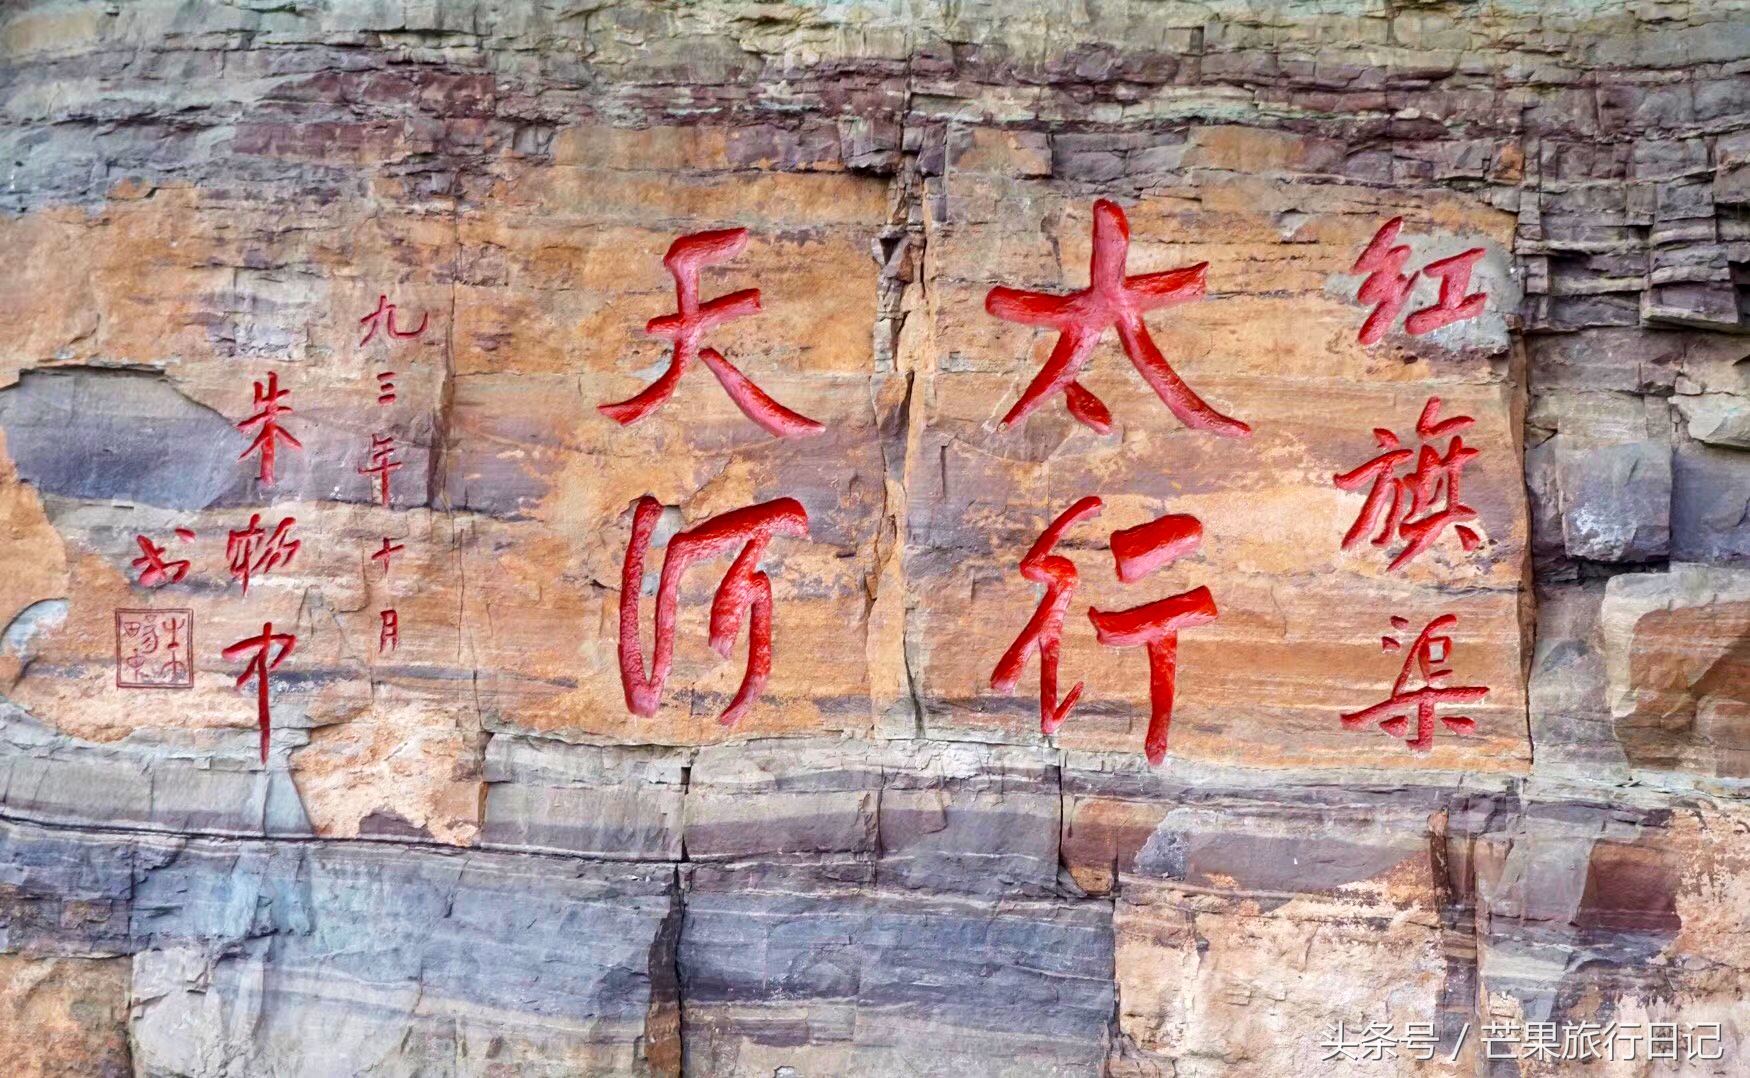 红旗渠
太行
天河
九三年十月
朱畅中
书
头条号 / 芒果旅行日记